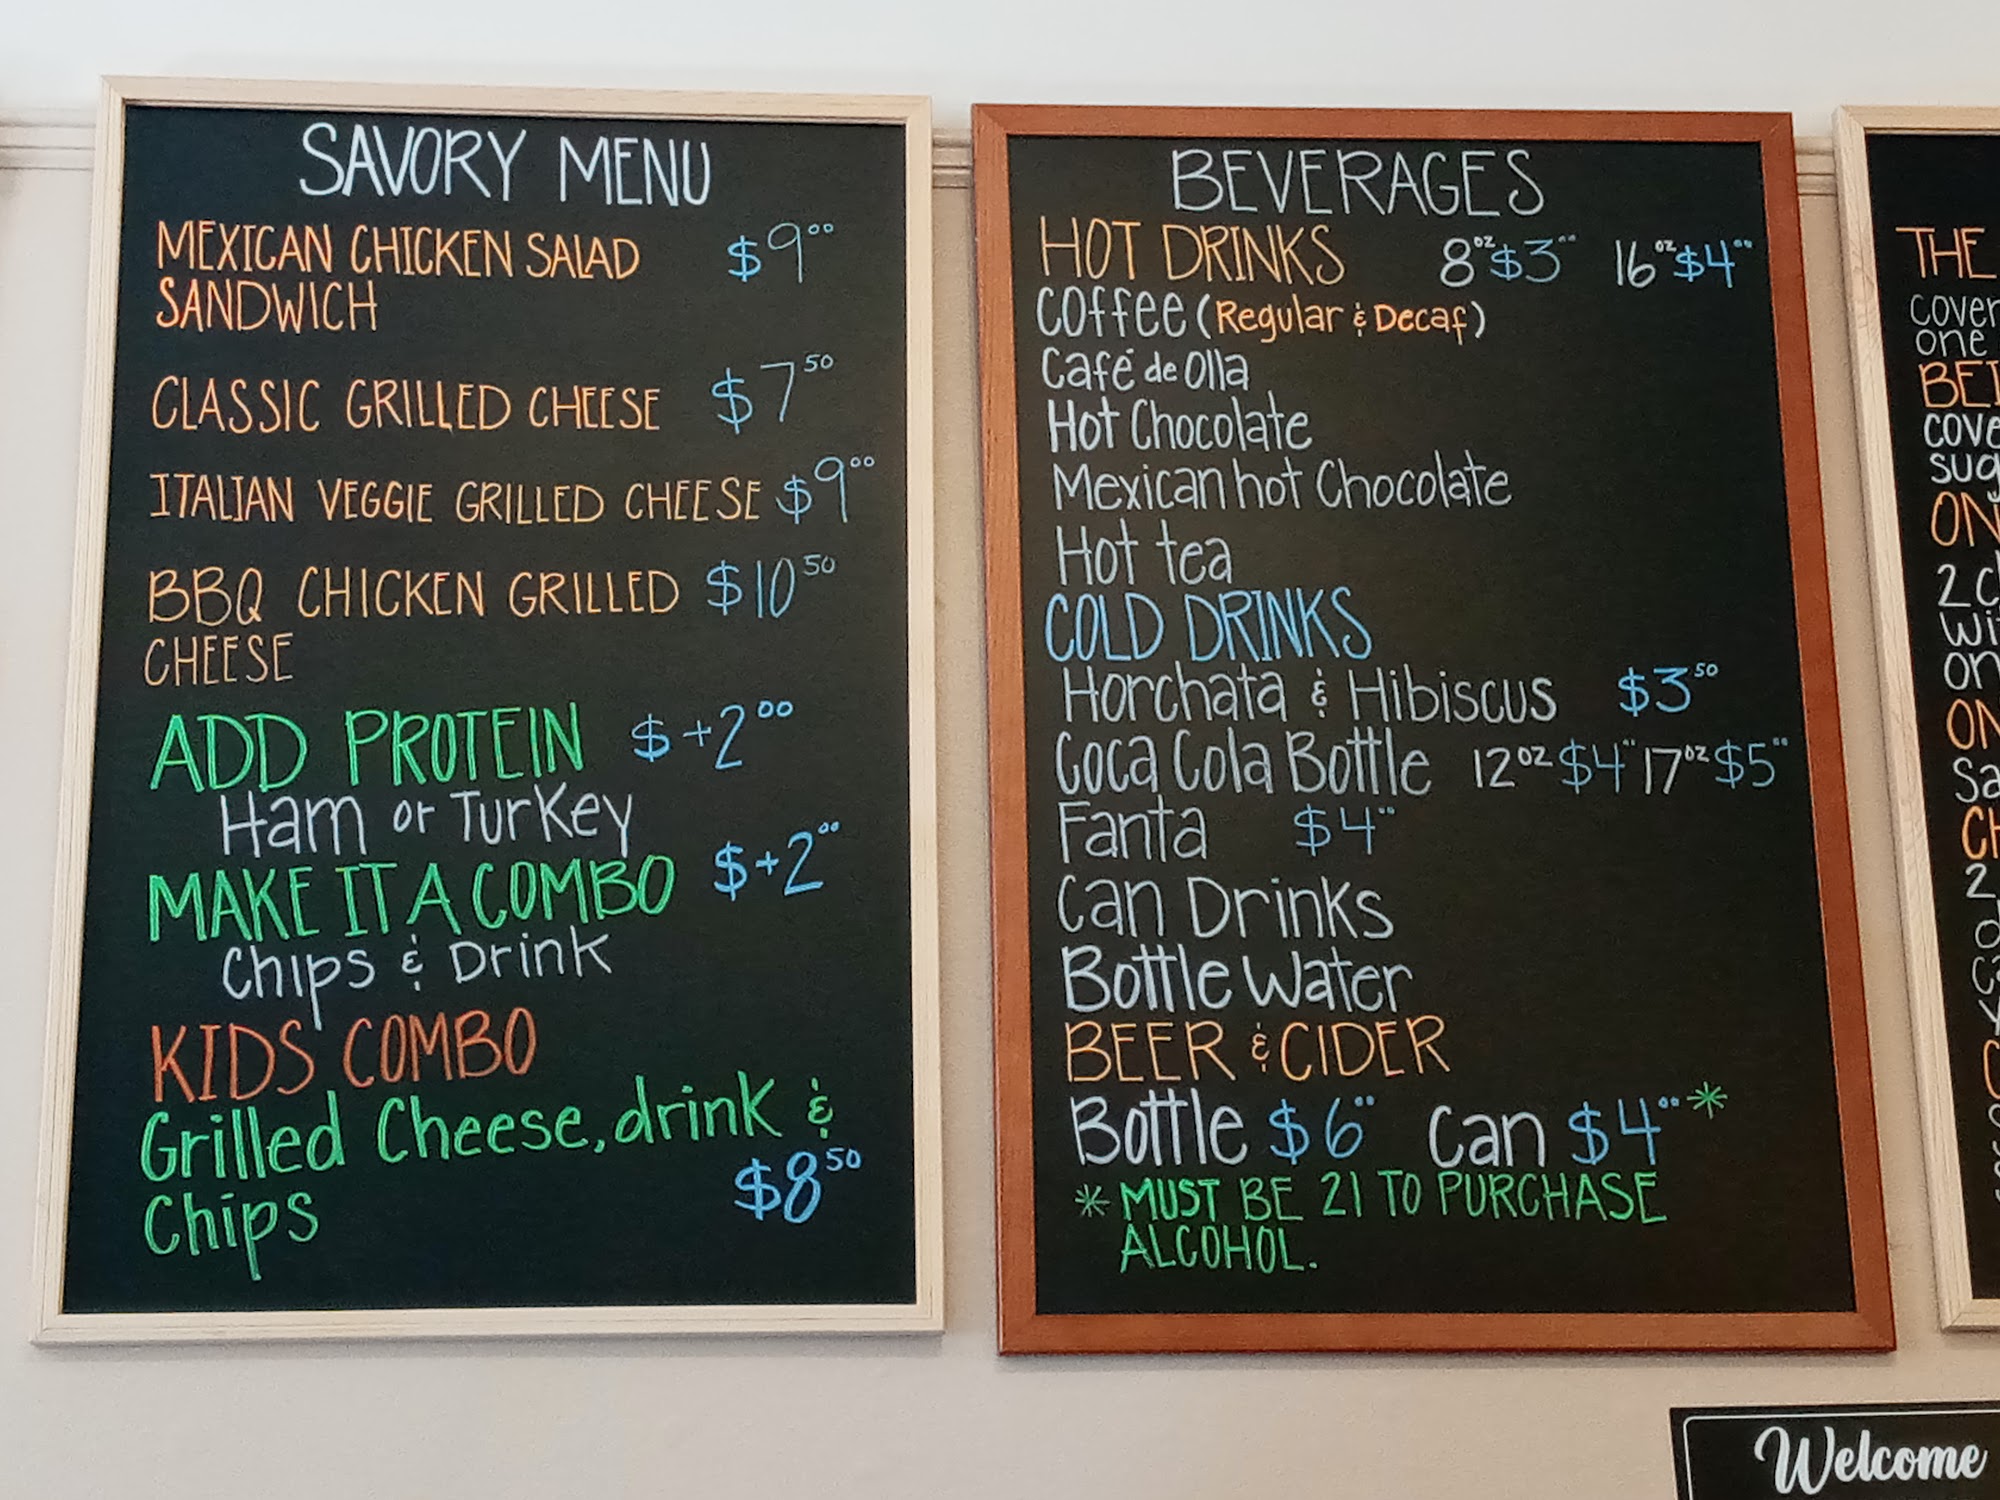 SAVORY MENU
MEXICAN CHICKEN SALAD $9.00
SANDWICH
CLASSIC GRILLED CHEESE $7.50
ITALIAN VEGGIE GRILLED CHEESE $9.00
BBQ CHICKEN GRILLED $10.50
CHEESE
ADD PROTEIN $+2.00
Ham or Turkey
MAKE IT A COMBO $+2.00
Chips & Drink
KIDS COMBO
Grilled Cheese, drink &
Chips $8.50
BEVERAGES
HOT DRINKS 8oz $3.00 16oz $4.00
Coffee (Regular & Decaf)
Café de Olla
Hot Chocolate
Mexican hot Chocolate
Hot tea
COLD DRINKS
Horchata & Hibiscus $3.50
Coca Cola Bottle 12oz $4.00 17oz $5.00
Fanta $4.00
Can Drinks
Bottle Water
BEER & CIDER
Bottle $6.00 Can $4.00*
* MUST BE 21 TO PURCHASE
ALCOHOL.
THE
one
2
Welcome